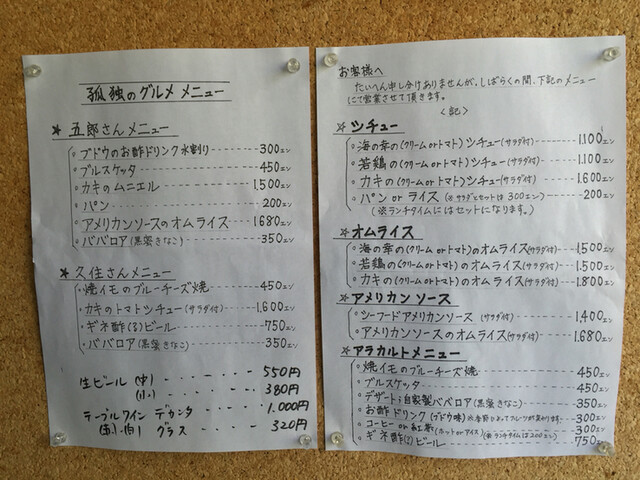 孤独のグルメ メニュー
★ 五郎さんメニュー
ブドウのお酢ドリンク水割り 300エン
ブルスケッタ 450エン
カキのムニエル 1,500エン
パン 200エン
アメリカンソースのオムライス 1680エン
ババロア(黒蜜きなこ) 350エン
★ 久住さんメニュー
焼イモのブルーチーズ焼 450エン
カキのトマトシチュー(サラダ付) 1,600エン
ギネ酢(る)ビール 750エン
ババロア(黒蜜きなこ) 350エン
生ビール (中) 550円
(小) 380円
テーブルワイン デカンタ 1,000円
(赤)・(白) グラス 320円
お客様へ
たいへん申し分けありませんが、しばらくの間、下記のメニュー
にて営業させて頂きます。
<記>
☆シチュー
海の幸の(クリームorトマト)シチュー(サラダ付) 1,100エン
若鶏の(クリームorトマト)シチュー(サラダ付) 1,100エン
カキの(クリームorトマト)シチュー(サラダ付) 1,600エン
パン or ライス (※サラダとセットは300エン) 200エン
(※ランチタイムにはセットになります。)
☆オムライス
海の幸の(クリームorトマト)のオムライス(サラダ付) 1,500エン
若鶏の(クリームorトマト)のオムライス(サラダ付) 1,500エン
カキの(クリームorトマト)のオムライス(サラダ付) 1,800エン
☆アメリカンソース
シーフードアメリカンソース (サラダ付) 1,400エン
アメリカンソースのオムライス(サラダ付) 1,680エン
☆アラカルトメニュー
焼イモのブルーチーズ焼 450エン
ブルスケッタ 450エン
デザート;自家製ババロア(黒蜜きなこ) 350エン
お酢ドリンク(ブドウ味)※季節によってフルーツが変わります 300エン
コーヒー or 紅茶(ホットorアイス)(※ランチタイムは200エン) 300エン
ギネ酢(る)ビール 750エン